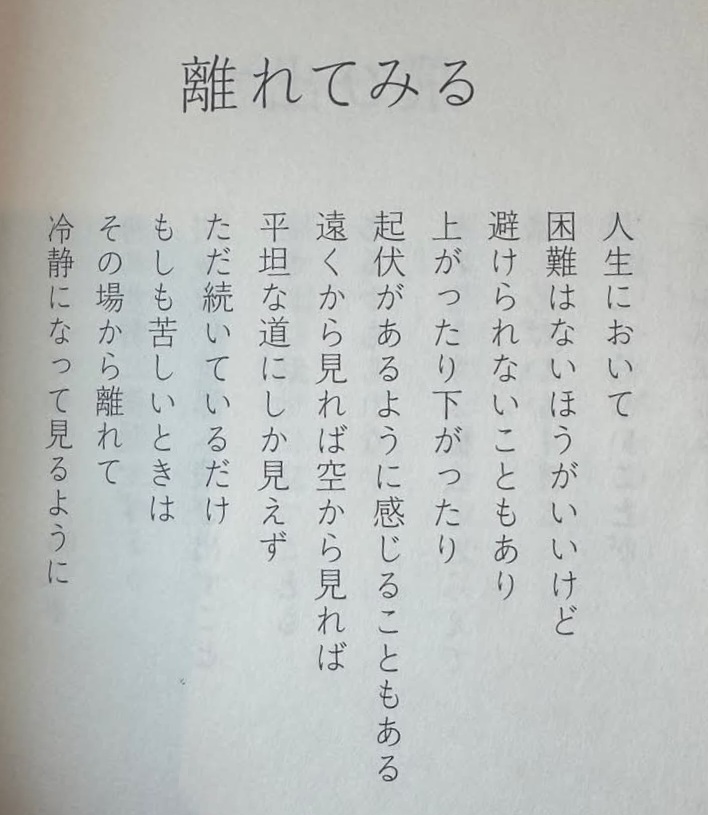 離れてみる
人生において
困難はないほうがいいけど
避けられないこともあり
上がったり下がったり
起伏があるように感じることもある
遠くから見れば空から見れば
平坦な道にしか見えず
ただ続いているだけ
もしも苦しいときは
その場から離れて
冷静になって見るように